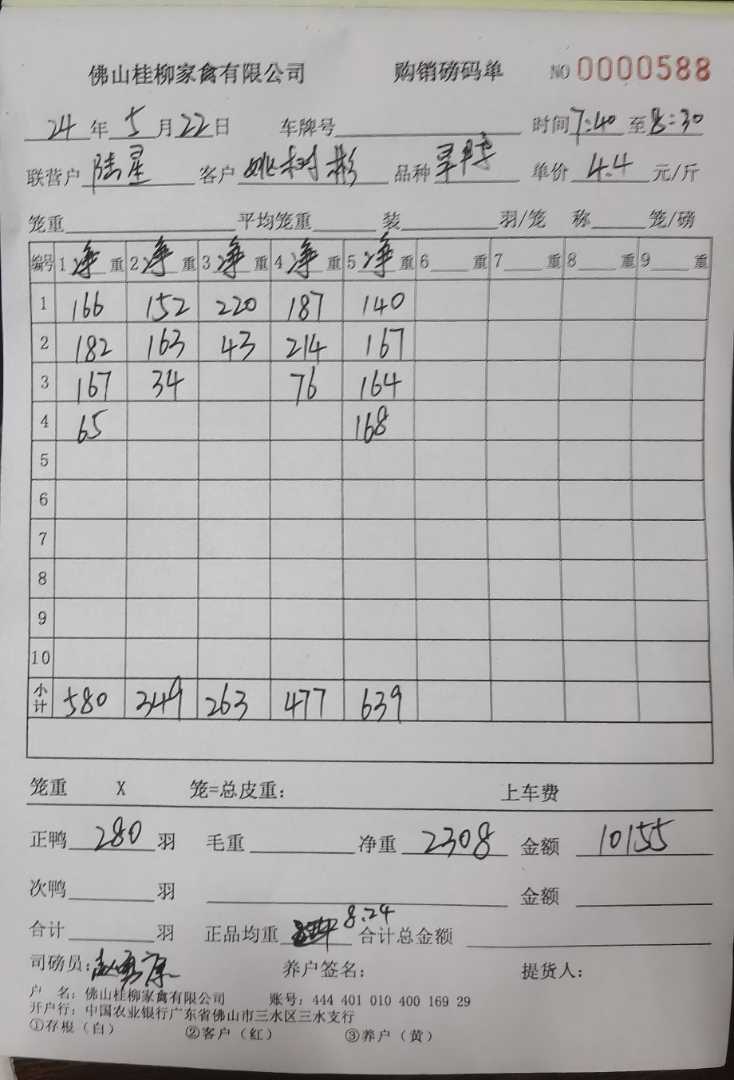 佛山桂柳家禽有限公司 购销磅码单 NO 0000588
24 年 5 月 22 日 车牌号 时间 7:40 至 8:30
联营户 陆星 客户 姚树彬 品种 单价 4.4 元/斤
笼重 平均笼重 装 羽/笼 称 笼/磅
编号 1 净 重 2 净 重 3 净 重 4 净 重 5 净 重 6 重 7 重 8 重 9 重
1 166 152 220 187 140
2 182 163 43 214 167
3 167 34 76 164
4 65 168
5
6
7
8
9
10
小计 580 349 263 477 639
笼重 X 笼=总皮重： 上车费
正鸭 280 羽 毛重 净重 2308 金额 10155
次鸭 羽 金额
合计 羽 正品均重 8.24 合计总金额
司磅员： 养户签名： 提货人：
户 名：佛山桂柳家禽有限公司 账号：444 401 010 400 169 29
开户行：中国农业银行广东省佛山市三水区三水支行
①存根（白） ②客户（红） ③养户（黄）